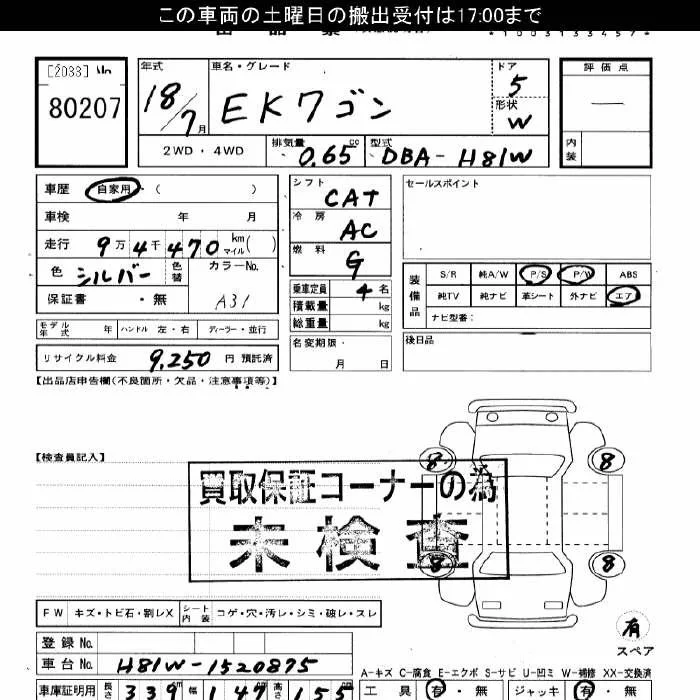 この車両の土曜日の搬出受付は17:00まで
*1003133457*
[2033] No
80207
年式
18/7月
車名・グレード
EKワゴン
ドア
5
形状
W
評価点
—
内装
2WD・4WD
排気量
0.65cc
型式
DBA-H81W
車歴 自家用 ( )
車検 年 月
走行 9万4千470km マイル( )
色 シルバー 色替
カラーNo.
A31
保証書 ・無
モデル年式 年 ハンドル 左・右 ディーラー・並行
リサイクル料金 9,250 円 預託済
シフト CAT
冷房 AC
燃料 G
乗車定員 4名
積載量 kg
総重量 kg
名変期限・
月 日
セールスポイント
装備品
S/R 純A/W P/S P/W ABS
純TV 純ナビ 革シート 外ナビ エア
ナビ型番:
後日品
【出品店申告欄(不良箇所・欠品・注意事項等)】
【検査員記入】
買取保証コーナーの為
未検査
8
8
8
8
有
スペア
FW キズ・トビ石・割レX シート内装 コゲ・穴・汚レ・シミ・破レ・スレ
登録 No.
車台 No. H81W-1520875
車庫証明用 長さ 339m 幅 147 高さ 155
A-キズ C-腐食 E-エクボ S-サビ U-凹ミ W-補修 XX-交換済
工具 有・無 ジャッキ 有・無